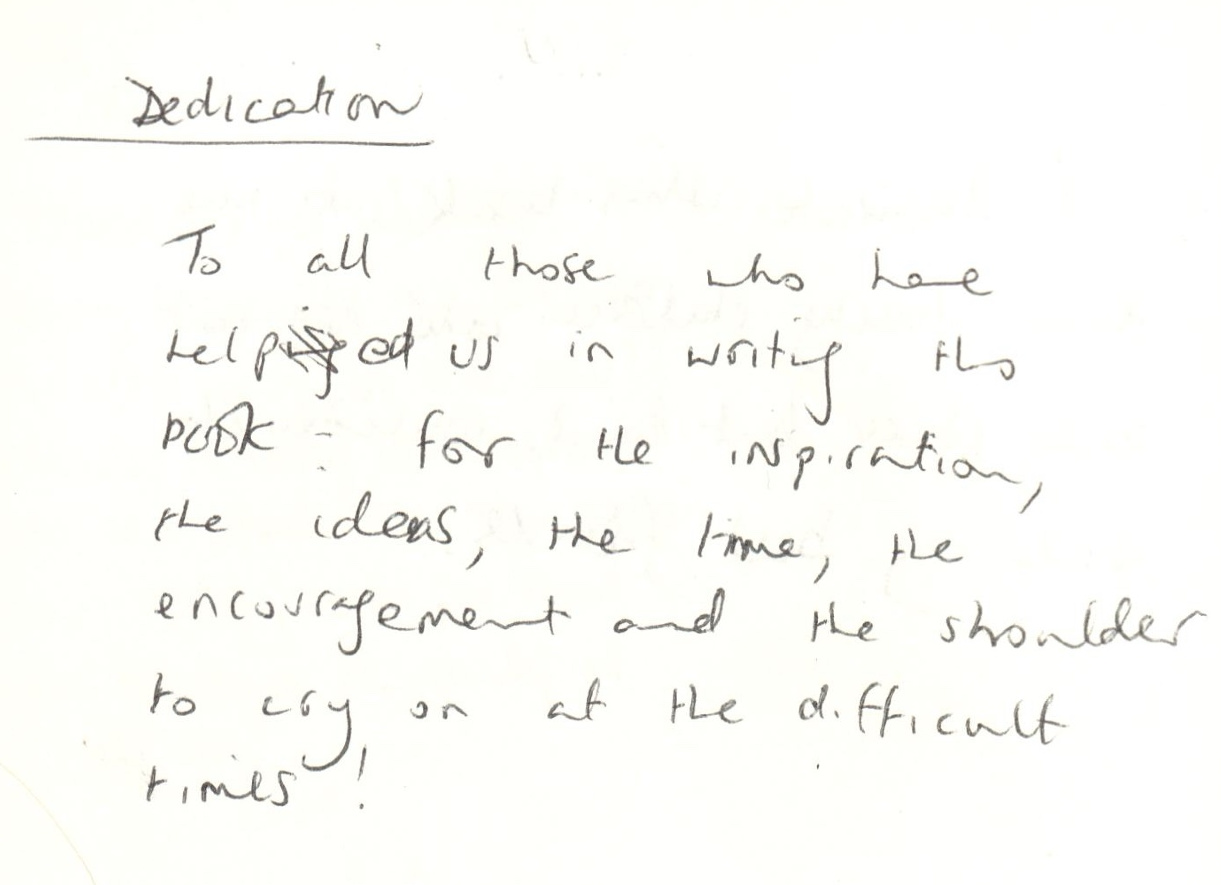 Dedication
To all those who have
helped us in writing this
book - for the inspiration,
the ideas, the time, the
encouragement and the shoulder
to cry on at the difficult
times!